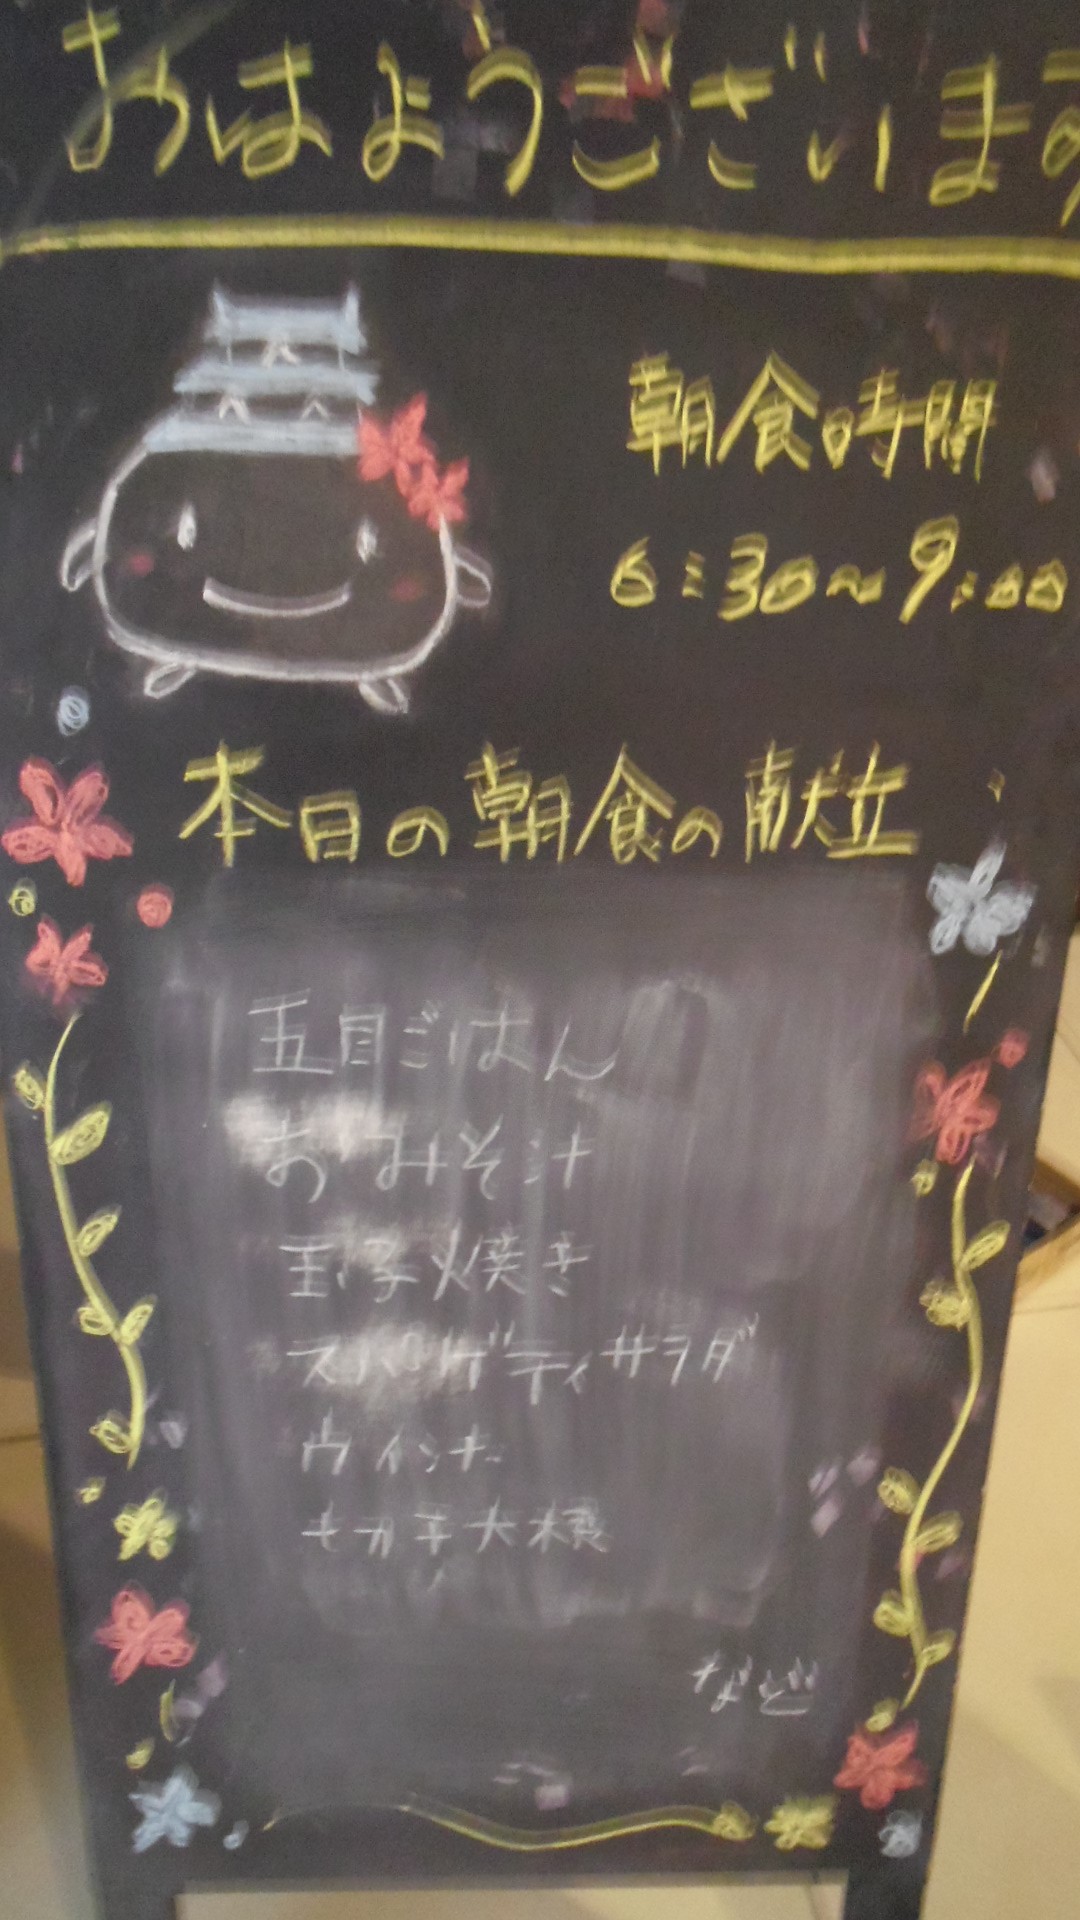 おはようございます
朝食時間
6:30~9:00
本日の朝食の献立
五目ごはん
おみそ汁
玉子焼き
スパゲティサラダ
ウインナー
切干大根
など